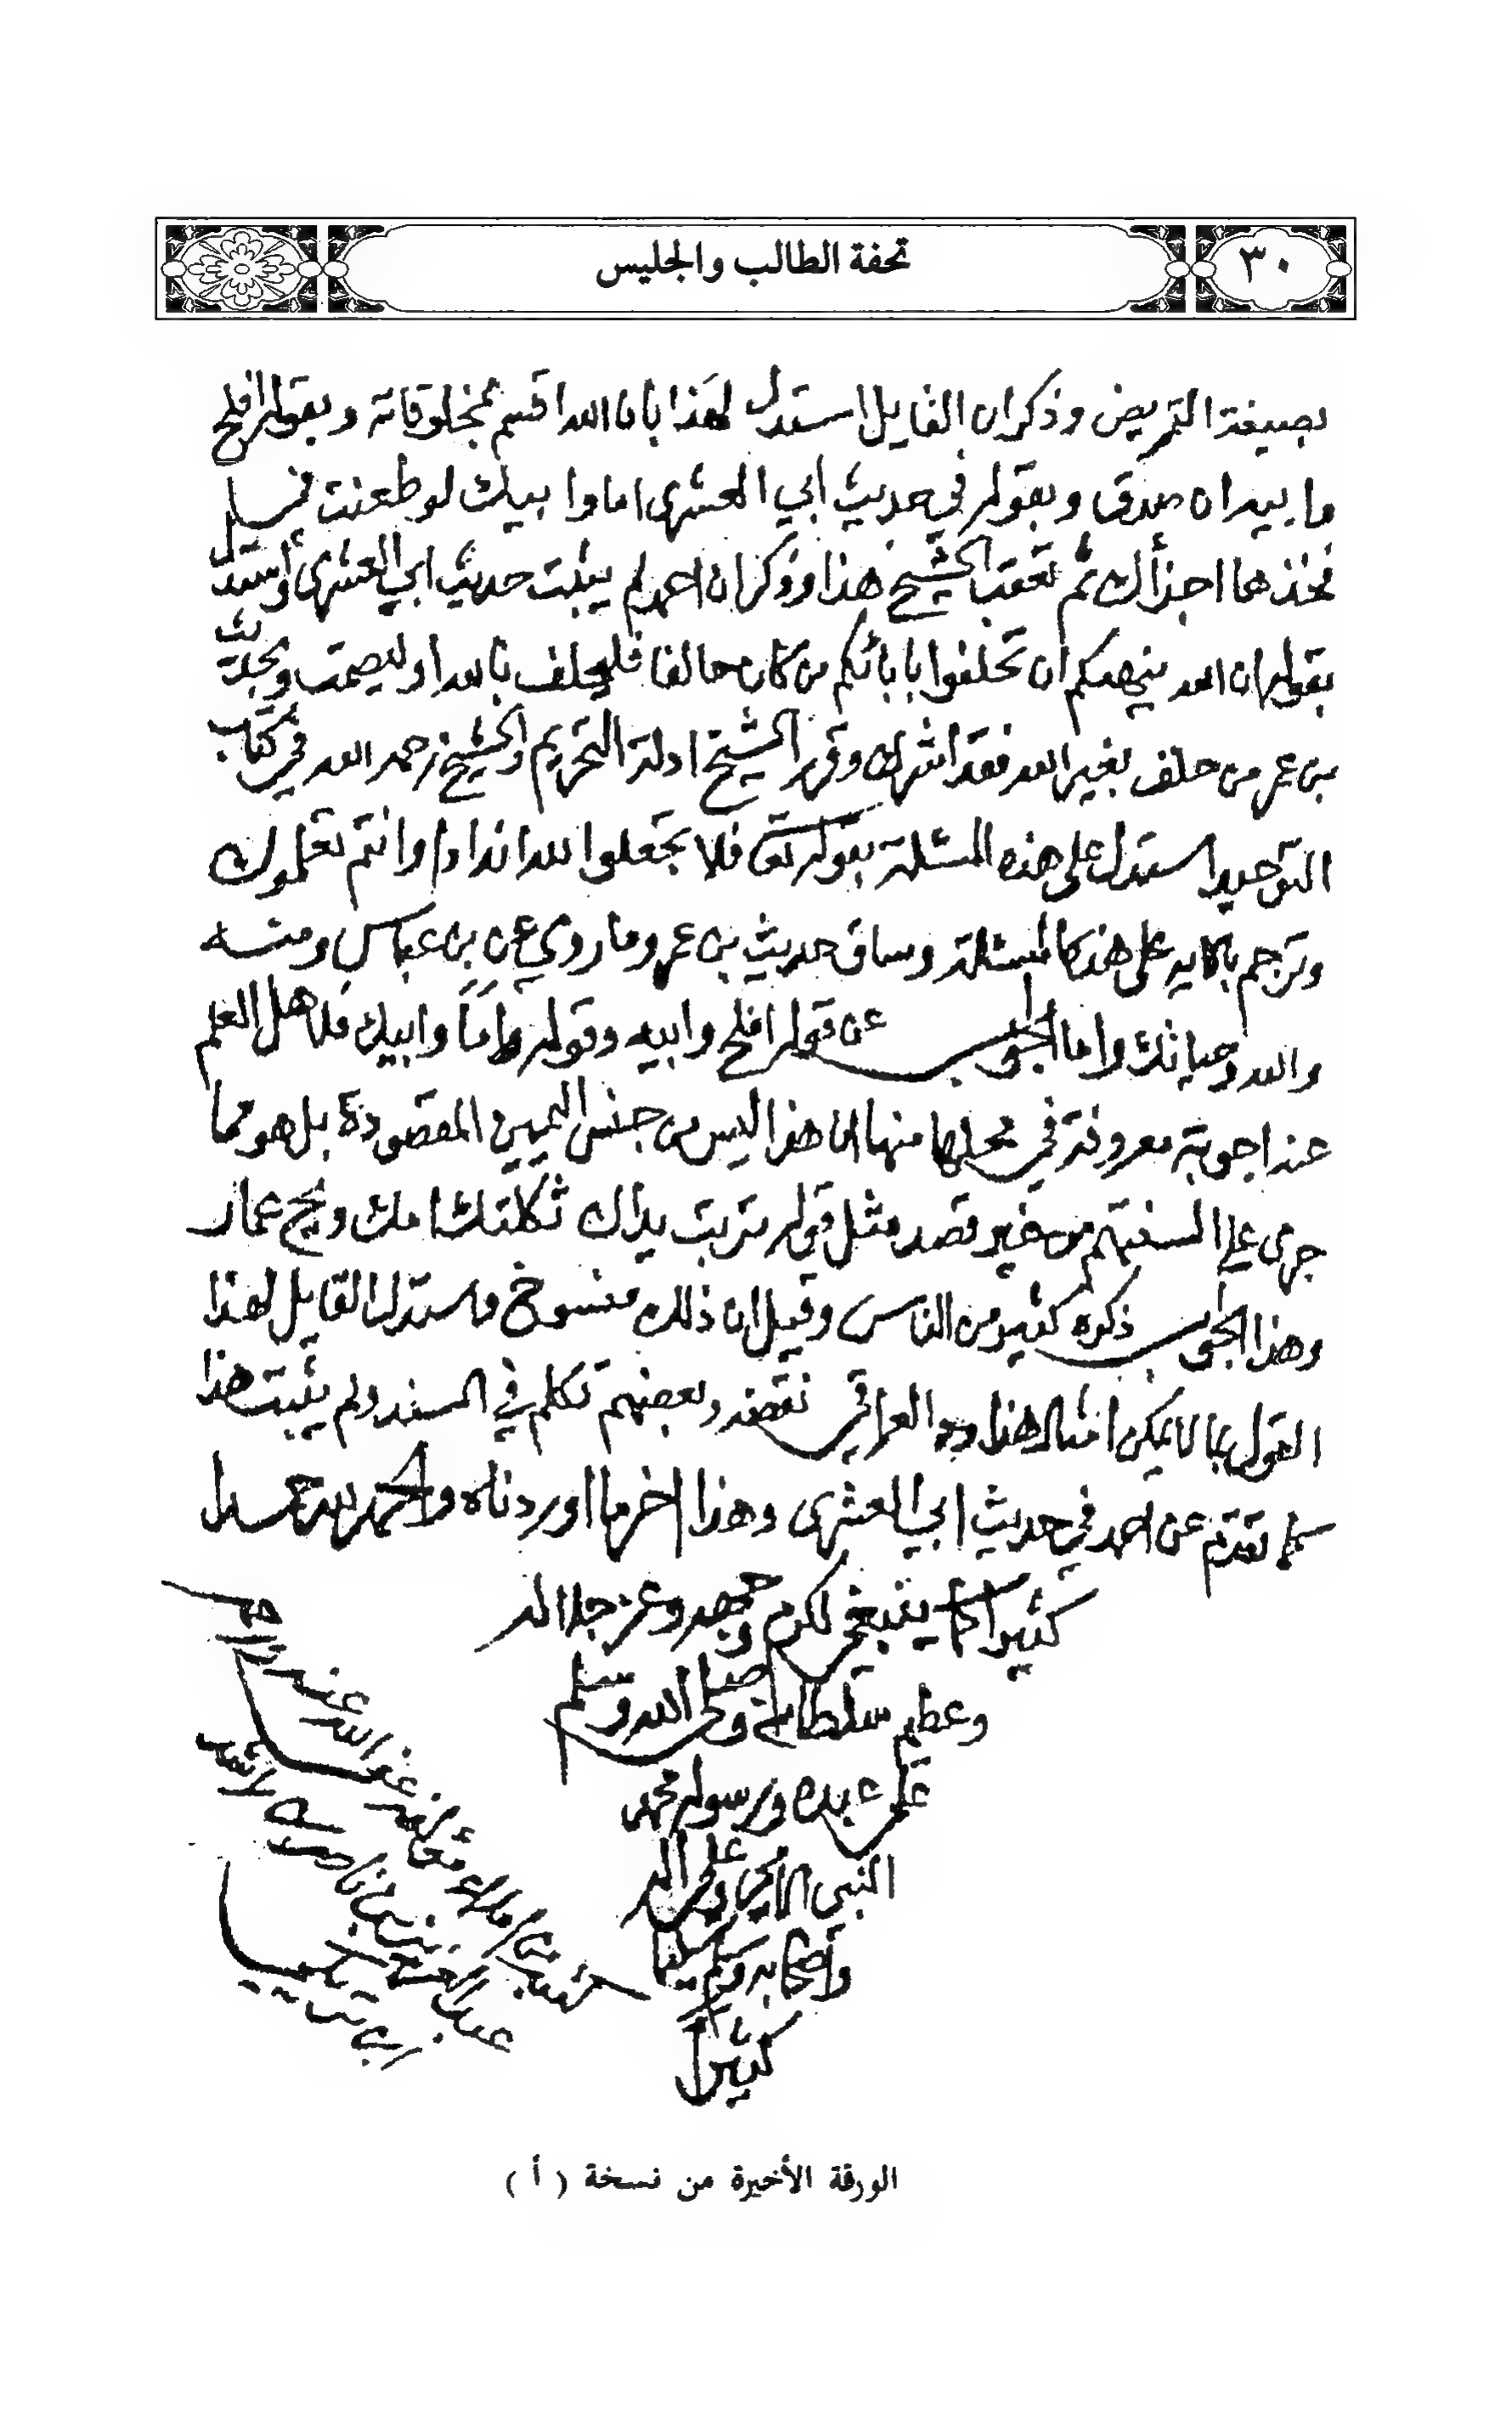 ٣٠
تحفة الطالب والجليس
بصيغة التمريض وذكر ان القايل استدل لهذا بان الله اقسم بمخلوقاته وبقوله افلح
وابيه ان صدق وبقوله في حديث ابي العشرى اما وابيك لو طعنت في
فخذها اجزأك ثم تعقب الشيخ هذا وذكر ان احمد لم يثبت حديث ابي العشرى واستدل
بقوله ان الله ينهىكم ان تحلفوا بابائكم من كان حالفا فليحلف بالله او ليصمت وبحديث
بن عمر من حلف بغير الله فقد اشرك وقرر الشيخ ادلة التحريم والشيخ رحمه الله في كتاب
التوحيد استدل على هذه المسئلة بقوله تعا فلا تجعلوا لله اندادا وانتم تعلمون
وترجم بالايه على هذه المسئلة وساق حديث بن عمر وما روي عن بن عباس ومنه
والله وحياتك واما الجواب عن قوله افلح وابيه وقوله اما وابيك فلاهل العلم
عنه اجوبة معروفة في محلها منها ان هذا ليس من جنس اليمين المقصودة بل هو مما
جرى على السنتهم من غير قصد مثل قوله تربت يداك ثكلتك امك ويح عمار
وهذا الجواب ذكره كثير من الناس وقيل ان ذلك منسوخ واستدل القايل لهذا
القول بما لا يمكن هذا العراقي نقضه وبعضهم تكلم في السند ولم يثبت هذا
كما تقدم عن احمد في حديث ابي العشرى وهذا اخر ما اوردناه والحمد لله حمدا
كثيرا كما ينبغي لكرم وجهه وعز جلاله
وعظيم سلطانه وصلى الله وسلم
على عبده ورسوله محمد
النبي الامي وعلى اله
واصحابه وسلم تسليما
كثيرا
الورقة الأخيرة من نسخة ( أ )